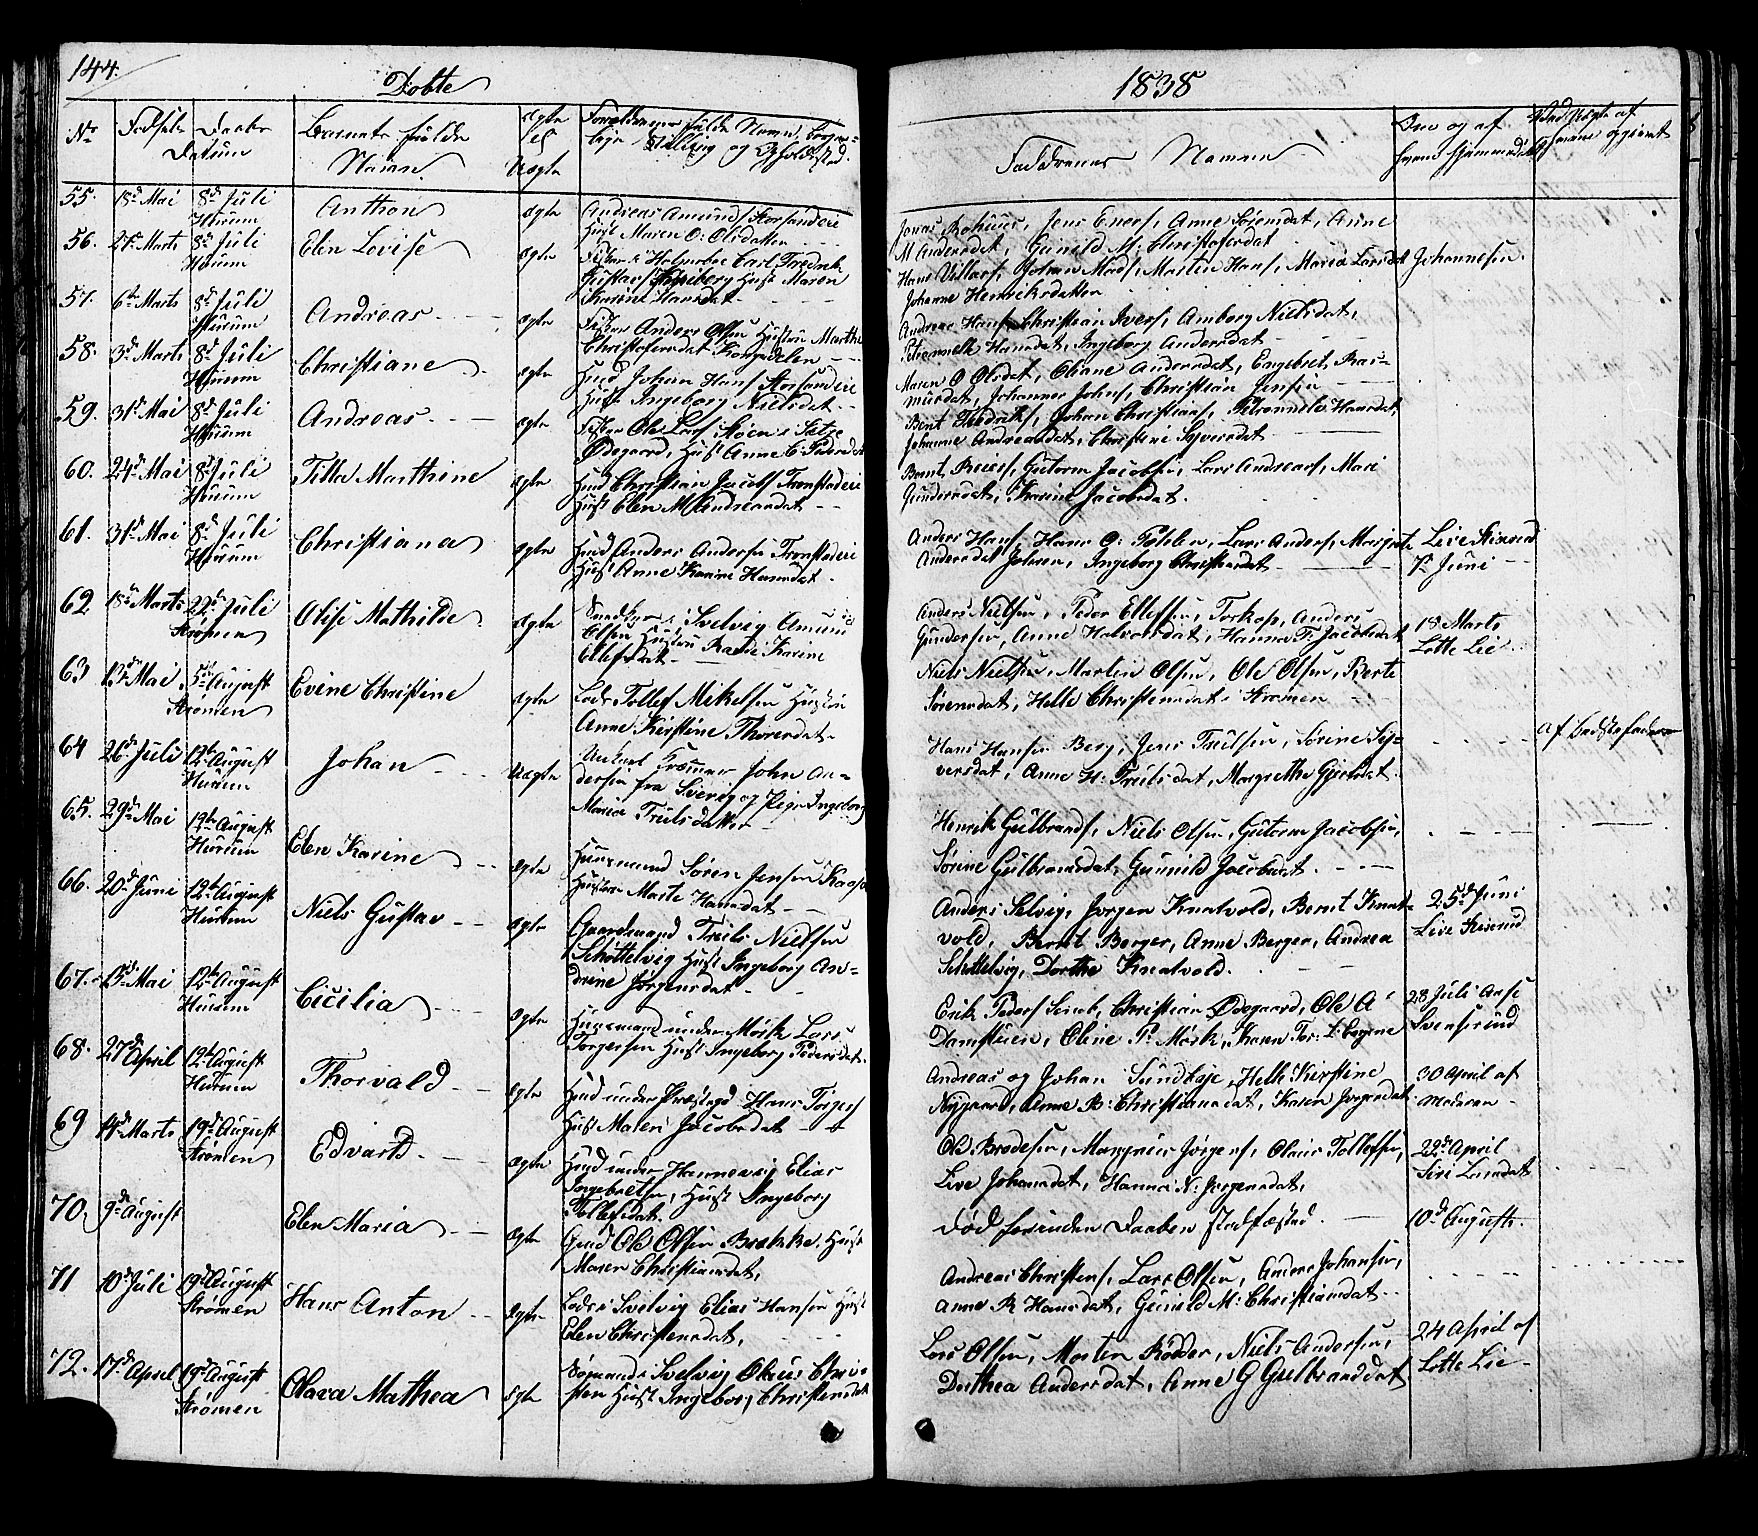 144.
Døbte
1838
No
Fødsels Daabs
Datum
Barnets fulde
Navn.
Ægte
el
Uægte
Forældrenes fulde Navn, Borger=
lige Stilling og Opholdssted.
Faddernes Navne
Om og af
hvem hjemmedøbt
55. 18de Mai 8de Juli
Hurum
Anthon
ægte
Andreas Amunds Storsanderie
Hust Maren O: Olsdatten
Jens Eners, Anne Sørensdat, Anne
M Andersdat, Gunild M: Christofersdat
56. 21de Marts 8de Juli
Hurum
Elen Lovise
ægte
Fisker i Holmsboe Carl Fredrik
Hust Maren
Karine Hansdat
Hans Villars, Johan Mads, Morten Hans, Maria Larsdat Johannesen.
Johanne Henriksdatten
57. 6te Marts 8de Juli
Hurum
Andreas
ægte
Fisker Anders Olsen Hustru Marthe
Christofersdat Kongsdelen
Andreas Hans Christian Ivers, Amborg Nielsdat,
Petronelle Hansdat, Ingeborg Andersdat
58. 3de Marts 8de Juli
Hurum
Christiane
ægte
Huud Johan Hans Storsanderie
Hust Ingeborg Nielsdat
Maren O Olsdat, Oliane Andersdat, Engebret Ras=
musdat, Johannes Johns, Christian Jensen
59. 31de Mai 8de Juli
Hurum
Andreas
ægte
Fisker Ole Lars Støen i Sætre
Ødegaard, Hust Anne C: Pedersdat
Bent Fredriks, Johan Christians, Petronelle Hansdat,
Johanne Andreasdat, Christine Syversdat
60. 24de Mai 8de Juli
Hurum
Tilla Marthine
ægte
Huud Christian Jacobs Tronstaderie
Hust Elen M Andreasdat
Bernt Reiers, Gutorm Jacobsen, Lars Andreas, Mari
Gundersdat, Karine Jacobsdat.
61. 31de Mai 8de Juli
Hurum
Christiana
ægte
Huud Anders Andersen Tronstaderie
Hust Anne Karine Hansdat
Anders Hans, Hans O: Pohlen, Lars Anders, Margrete
Andersdat Johnsen, Ingeborg Christensdat
Live Kinrud
7de Juni
62 18de Marts 22de Juli
Strømen
Olise Mathilde
ægte
i Svelvig Amund
Olsen Hustru Karine
Ellefsdat
Anders Nielsen, Peder Ellefsen, Torkap, Anders
Gundersen, Anne Halvorsdat, Hanna F. Jacobsdat
18 Marts
Lotte Lie
63 13de Mai 5te August
Strømen
Evine Christine
ægte
Lods Tollef Mikelsen Hustru
Anne Kirstine Thorersdat
Niels Nielsen, Martin Olsen, Ole Olsen, Berte
Sørensdat, Helle Christensdat i Strømen
64 26de Juli 12te August
Hurum
Johan
Uægte
Unkarl Tømmer John An=
dersen fra Sverig og Pige Ingeborg
Maria Trulsdatter
Hans Hansen Berg, Jens Trulsen, Sørine Sy=
versdat, Anne H: Trulsdat, Margrethe Gjertdat
af Bedstefaderen
65. 29de Mai 12te August
Hurum
Elen Karine
ægte
Huusmand Søren Jensen Kaasa
Hustru Marte Hansdat
Henrik Gulbrands, Niels Olsen, Gutorm Jacobsen,
Sørine Gulbransdat, Gunnild Jacobsdat.
66. 20de Juni 12te August
Hurum
Niels Gustav
ægte
Gaardmand Truls Nielsen
Schøttelvig Hust Ingeborg An=
drine Jørgensdat
Anders Selvig, Jørgen Knatvold, Bernt Knat=
vold, Bernt Berger, Anne Berger, Andrea
Schøttelvig, Dorthe Knatvold.
25de Juni
Live Kinrud
67. 13de Mai 12te August
Hurum
Cicilia
ægte
Huusmand under Mørk Lars
Torgersen Hust Ingeborg Pedersdat
Erik Peders Christian Ødegaard, Ole A
Damstuen, Oline P: Mørk, Karen
28 Juli Aase
Svensrund
68. 27de April 12te August
Hurum
Thorvald
ægte
Huud under Præstegd Hans Torgers
Hust Maleri Jacobsdat
Andreas og Johan Sundbye, Helle Kirstine
Nygaard, Anne B: Christiansdat, Karen Jørgensdat
30 April af
Moderen
69 14de Marts 19de August
Strømen
Edvard
ægte
Huud under Hannevig Elias
Ingebretsen, Hust Ingeborg
Tollefsdat.
Ole Brodesen, Mangnus Jørgens, Olaus Tollefsen,
Live Johansdat, Hanna N: Jørgensdat,
22de April
Siri Larsdat
70. 9de August
Elen Maria
ægte
Gmd Ole Olsen Brekke, Hust
Maren Christiansdat,
død forinden Daaben stadfæsted.
10de August.
71 10de Juli 19de August
Strømen
Hans Anton
ægte
Lods i Svelvig Elias Hansen Hust
Elen Christensdat,
Andreas Christens, Lars Olsen, Anders Johansen,
Anne K Hansdat, Gunild M: Christiansdat
72. 17de April 19de August
Strømen
Olava Mathea
ægte
Sømand i Svelvig Olaus Chris=
ten Hust Ingeborg Christensdat
Lars Olsen, Morten Rødder, Niels Andersen,
Dorthea Andersdat, Anne G Gulbrandsdat
24 April af
Lotte Lie